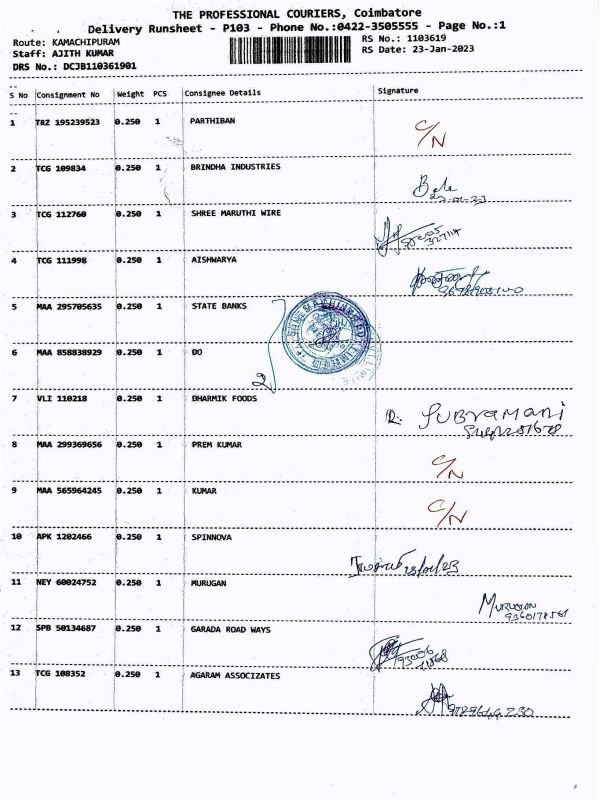 THE PROFESSIONAL COURIERS, Coimbatore
Delivery Runsheet - P103 - Phone No.:0422-3505555 - Page No.:1
Route: KAMACHIPURAM
RS No.: 1103619
Staff: AJITH KUMAR
RS Date: 23-Jan-2023
DRS No.: DCJB110361901
S No Consignment No Weight PCS Consignee Details Signature
1 TRZ 195239523 0.250 1 PARTHIBAN C/N
2 TCG 109834 0.250 1 BRINDHA INDUSTRIES
3 TCG 112760 0.250 1 SHREE MARUTHI WIRE
4 TCG 111998 0.250 1 AISHWARYA
5 MAA 295705635 0.250 1 STATE BANKS
6 MAA 858838929 0.250 1 DO
2
7 VLI 110218 0.250 1 DHARMIK FOODS SUBRAMANI
8 MAA 299369656 0.250 1 PREM KUMAR C/N
9 MAA 565964245 0.250 1 KUMAR C/N
10 APK 1202466 0.250 1 SPINNOVA 23/01/23
11 NEY 60024752 0.250 1 MURUGAN Murugan
12 SPB 50134687 0.250 1 GARADA ROAD WAYS
13 TCG 108352 0.250 1 AGARAM ASSOCIZATES